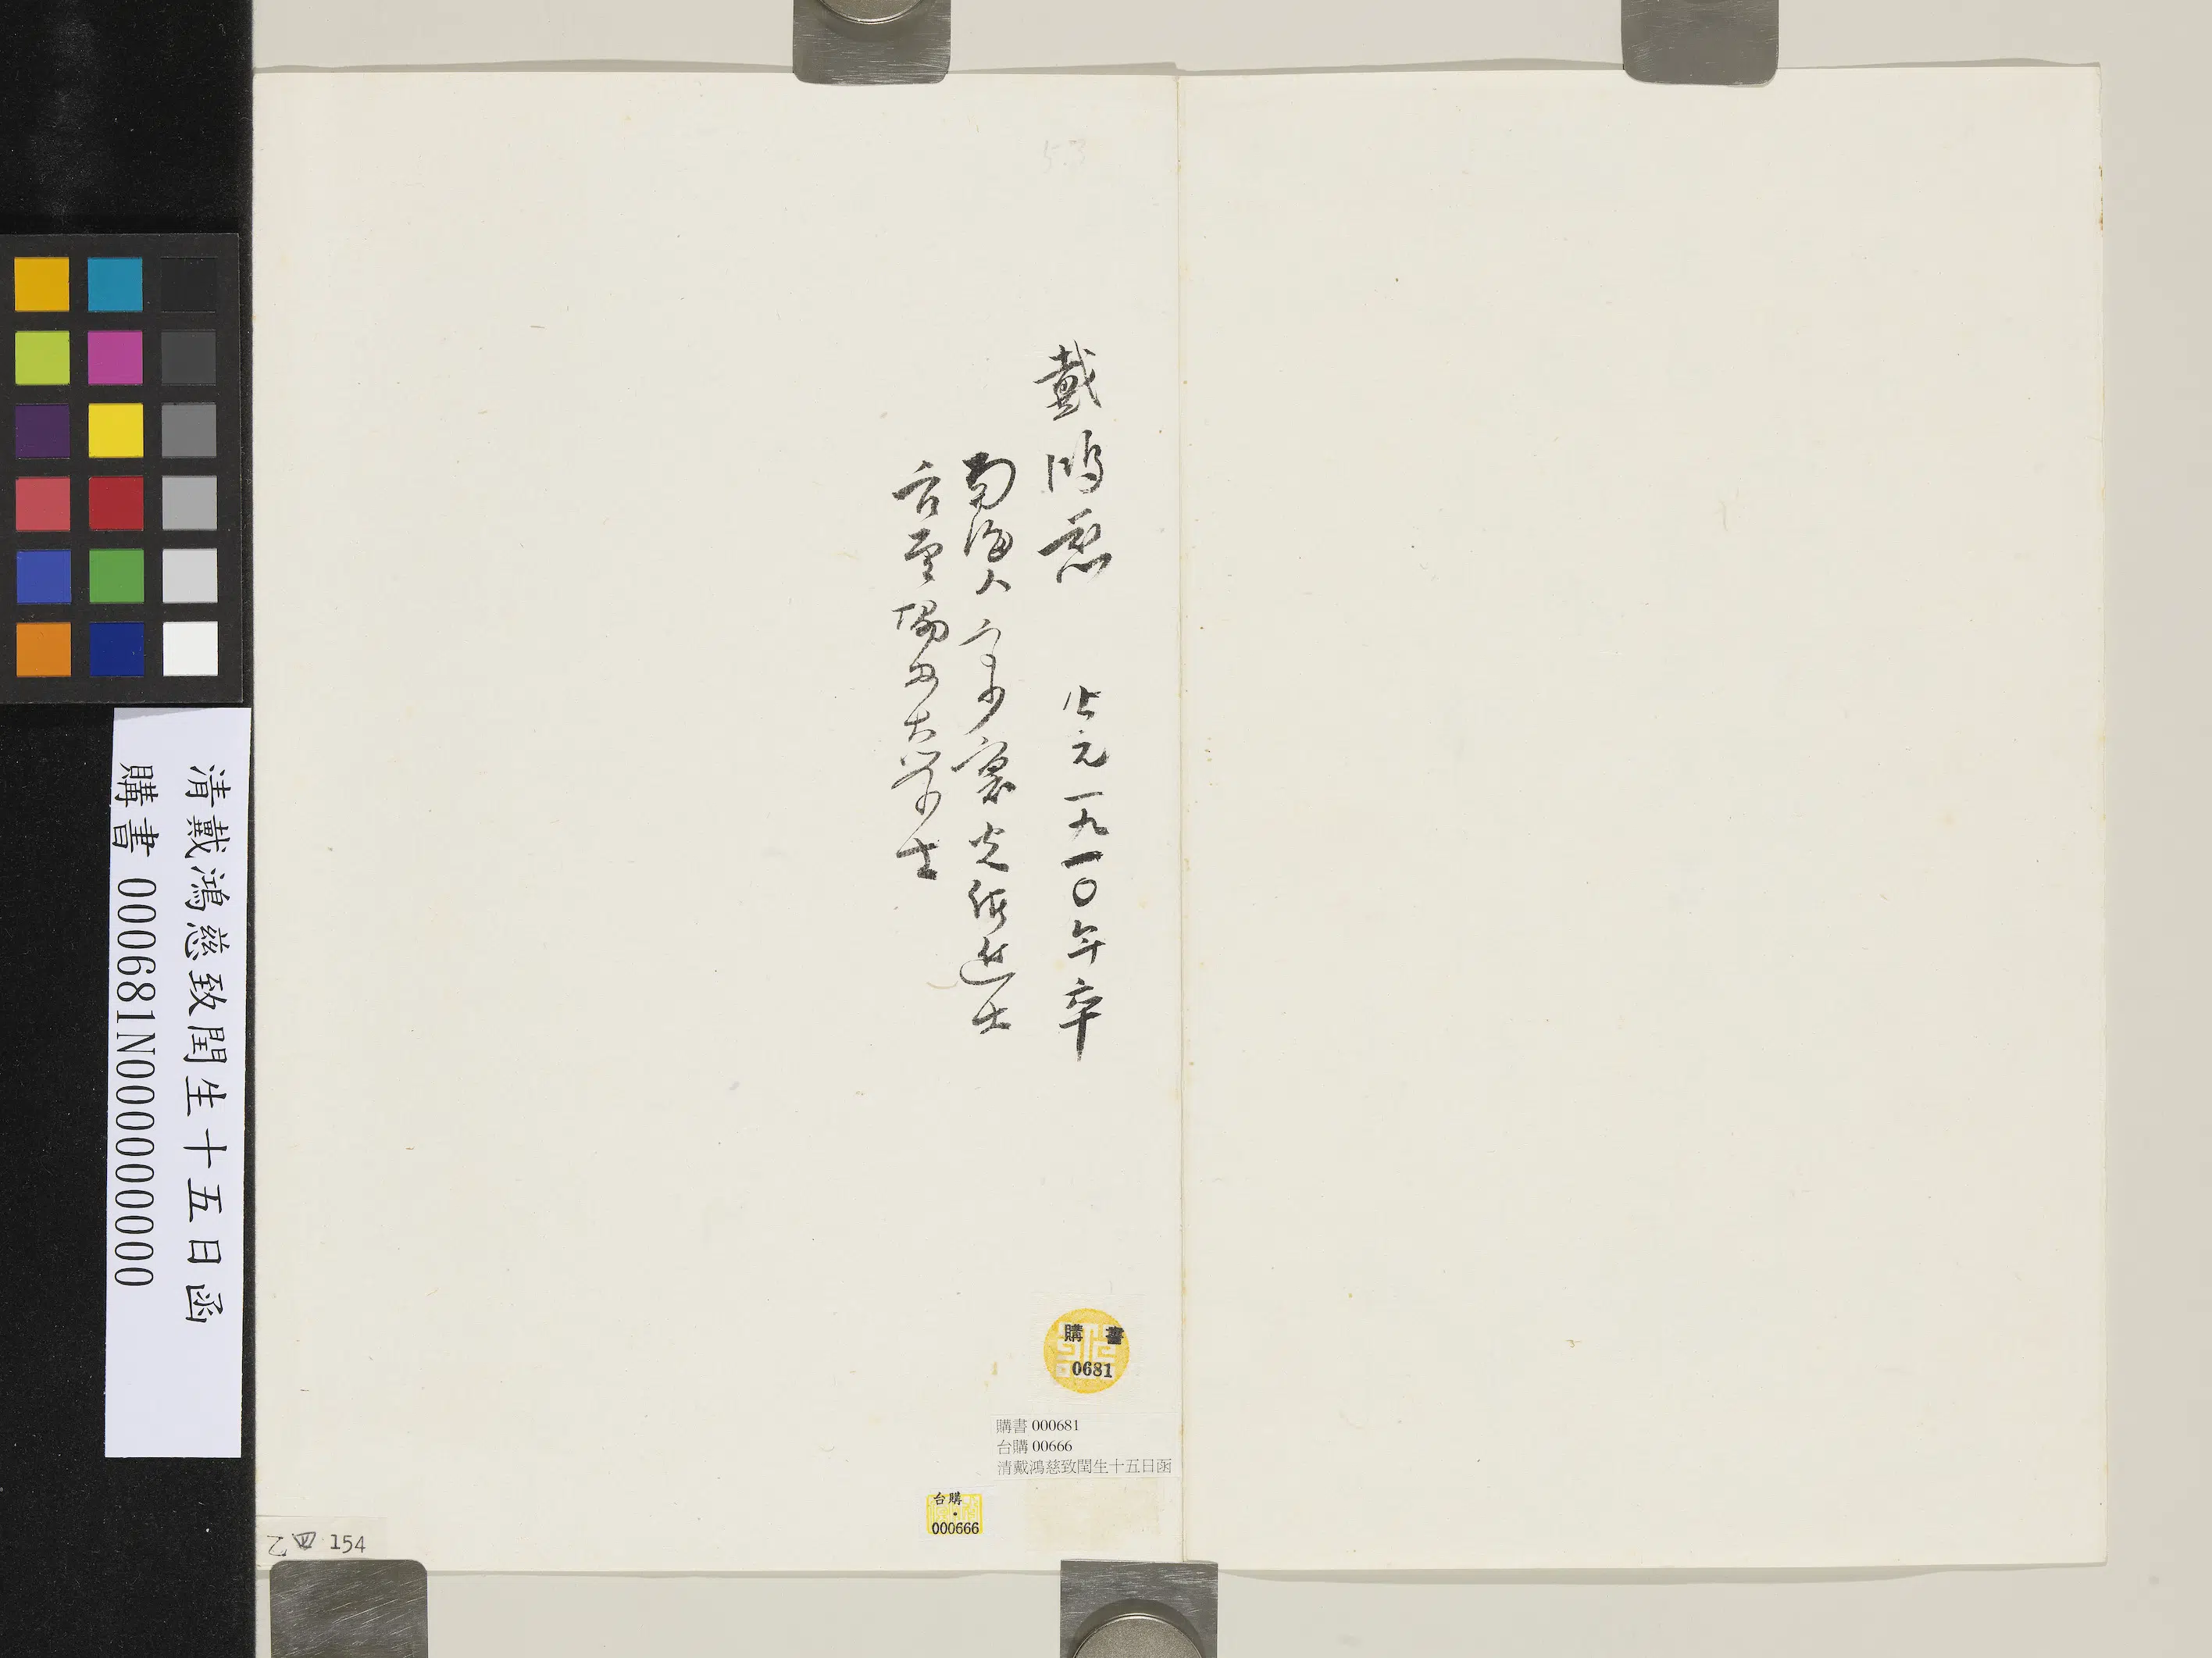 53
戴鴻慈 公元一九一〇年卒
南海人字少懷光緒進士
官至協辦大學士
清戴鴻慈致閏生十五日函
購書 000681N000000000
購 書
0681
購書 000681
台購 00666
清戴鴻慈致閏生十五日函
台購
000666
乙四 154